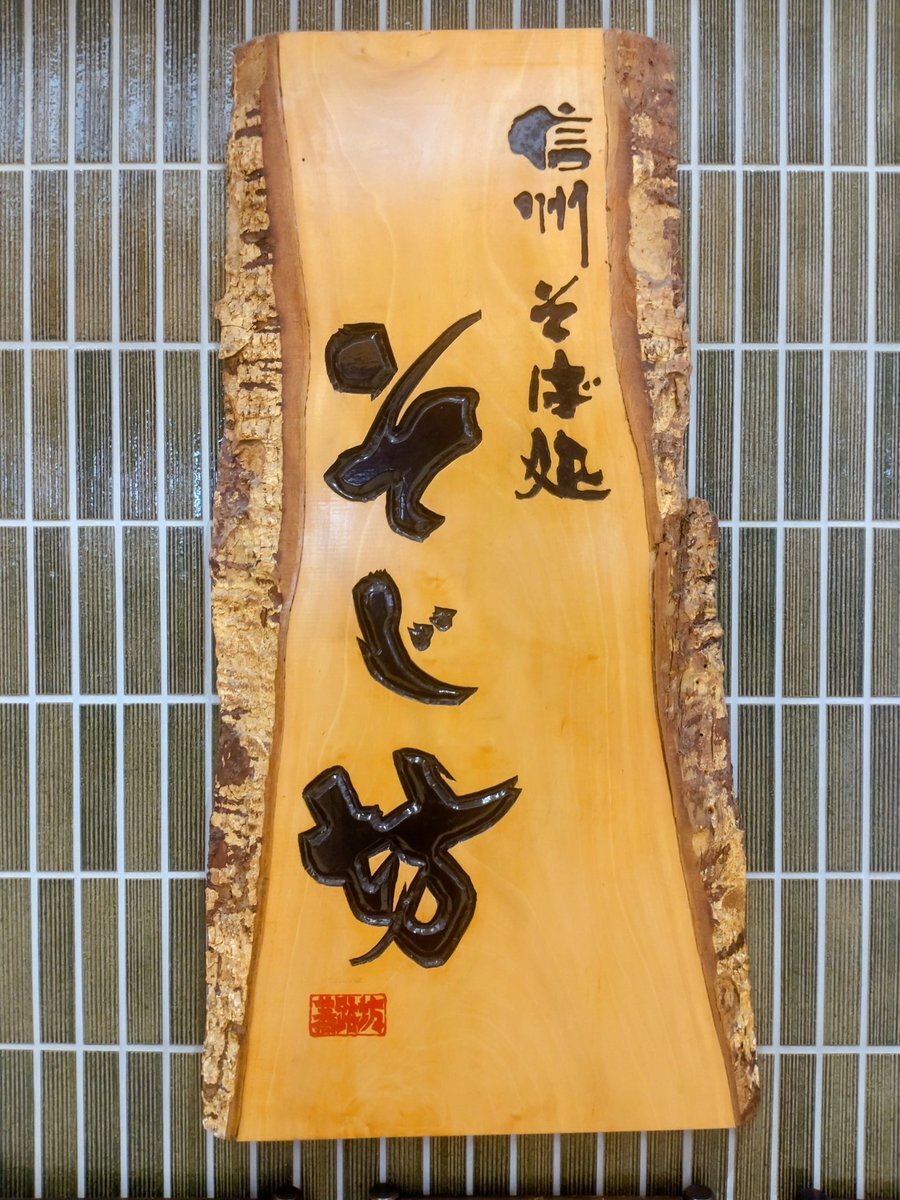 信州そば処
そじ坊
蕎路坊